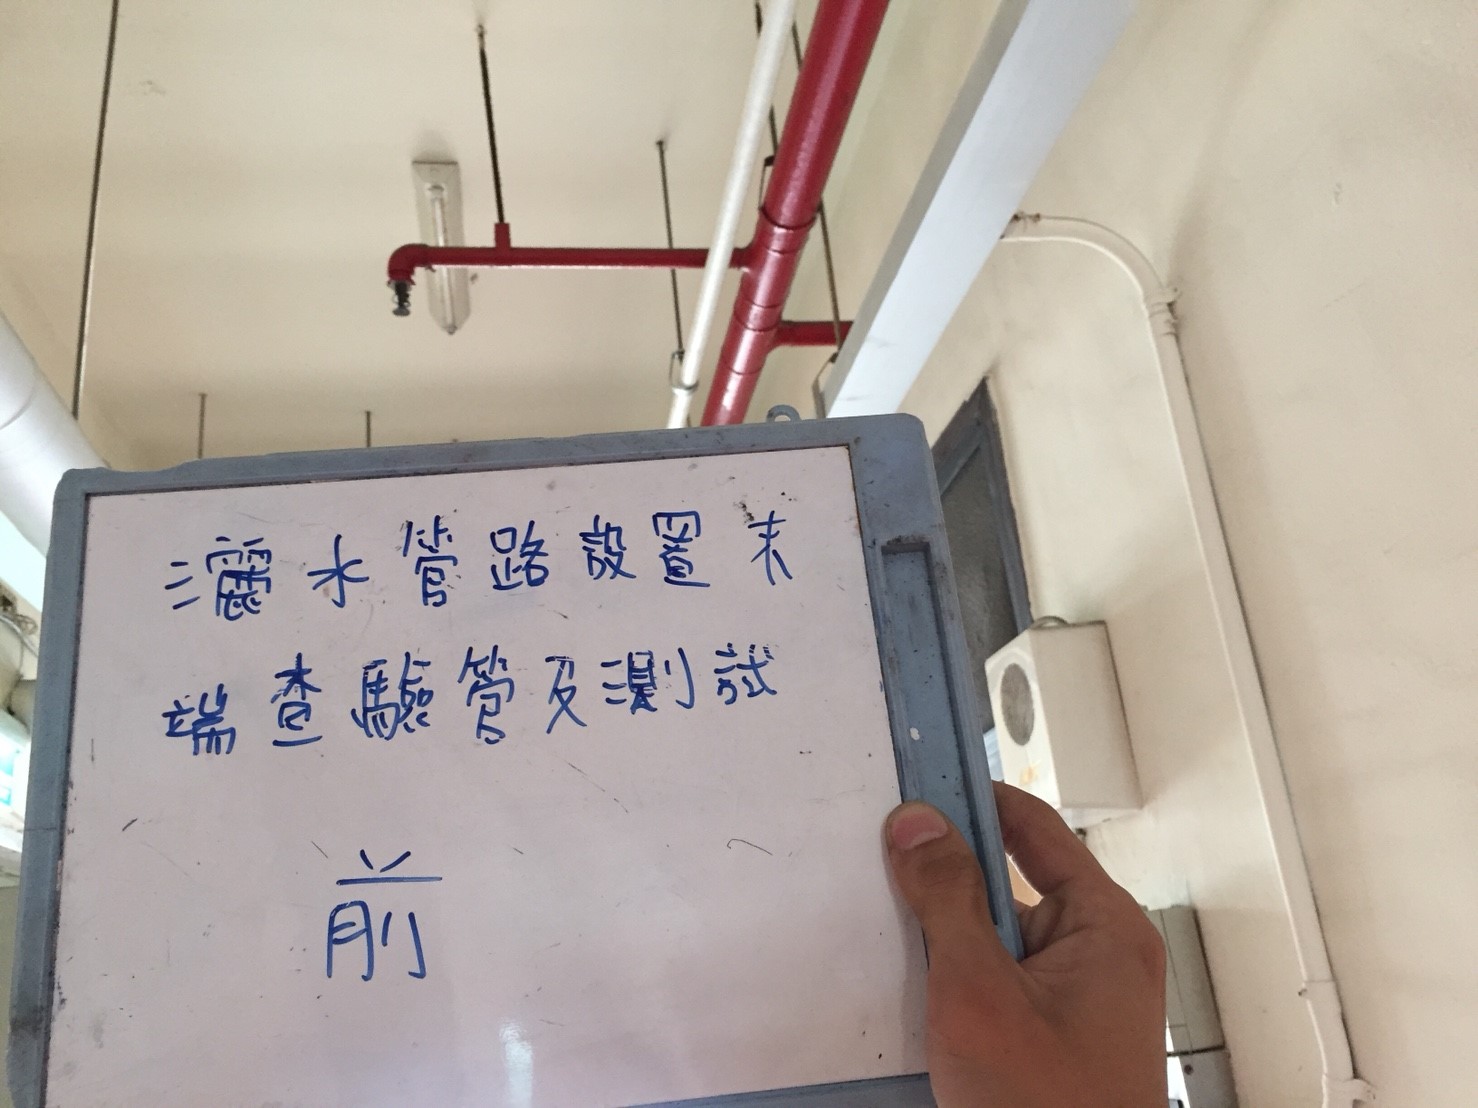 灑水管路設置末
端查驗管及測試
前